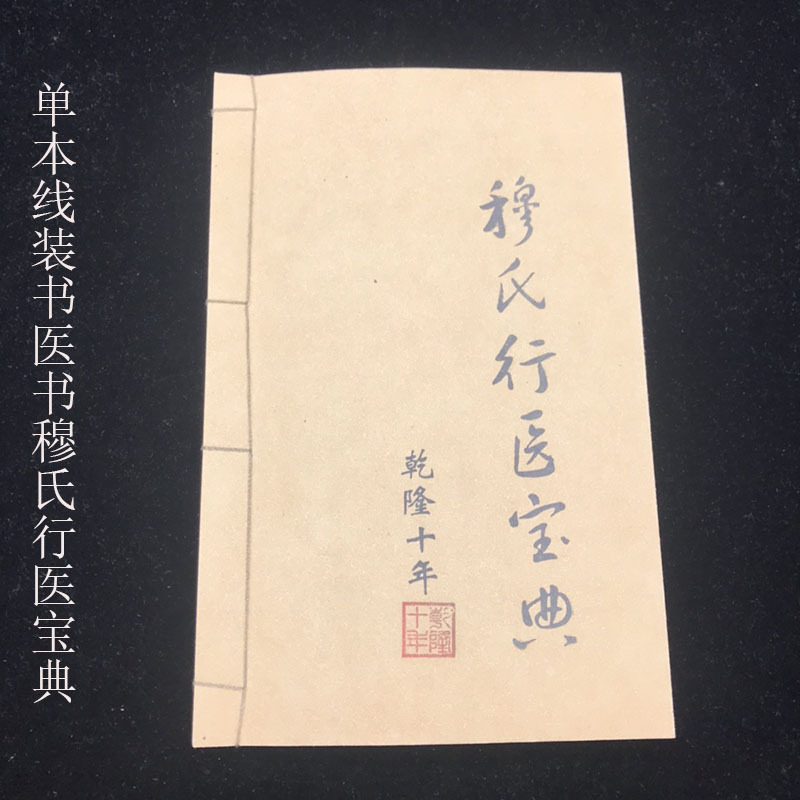 单本线装书医书穆氏行医宝典
穆氏行医宝典
乾隆十年
乾隆
十年